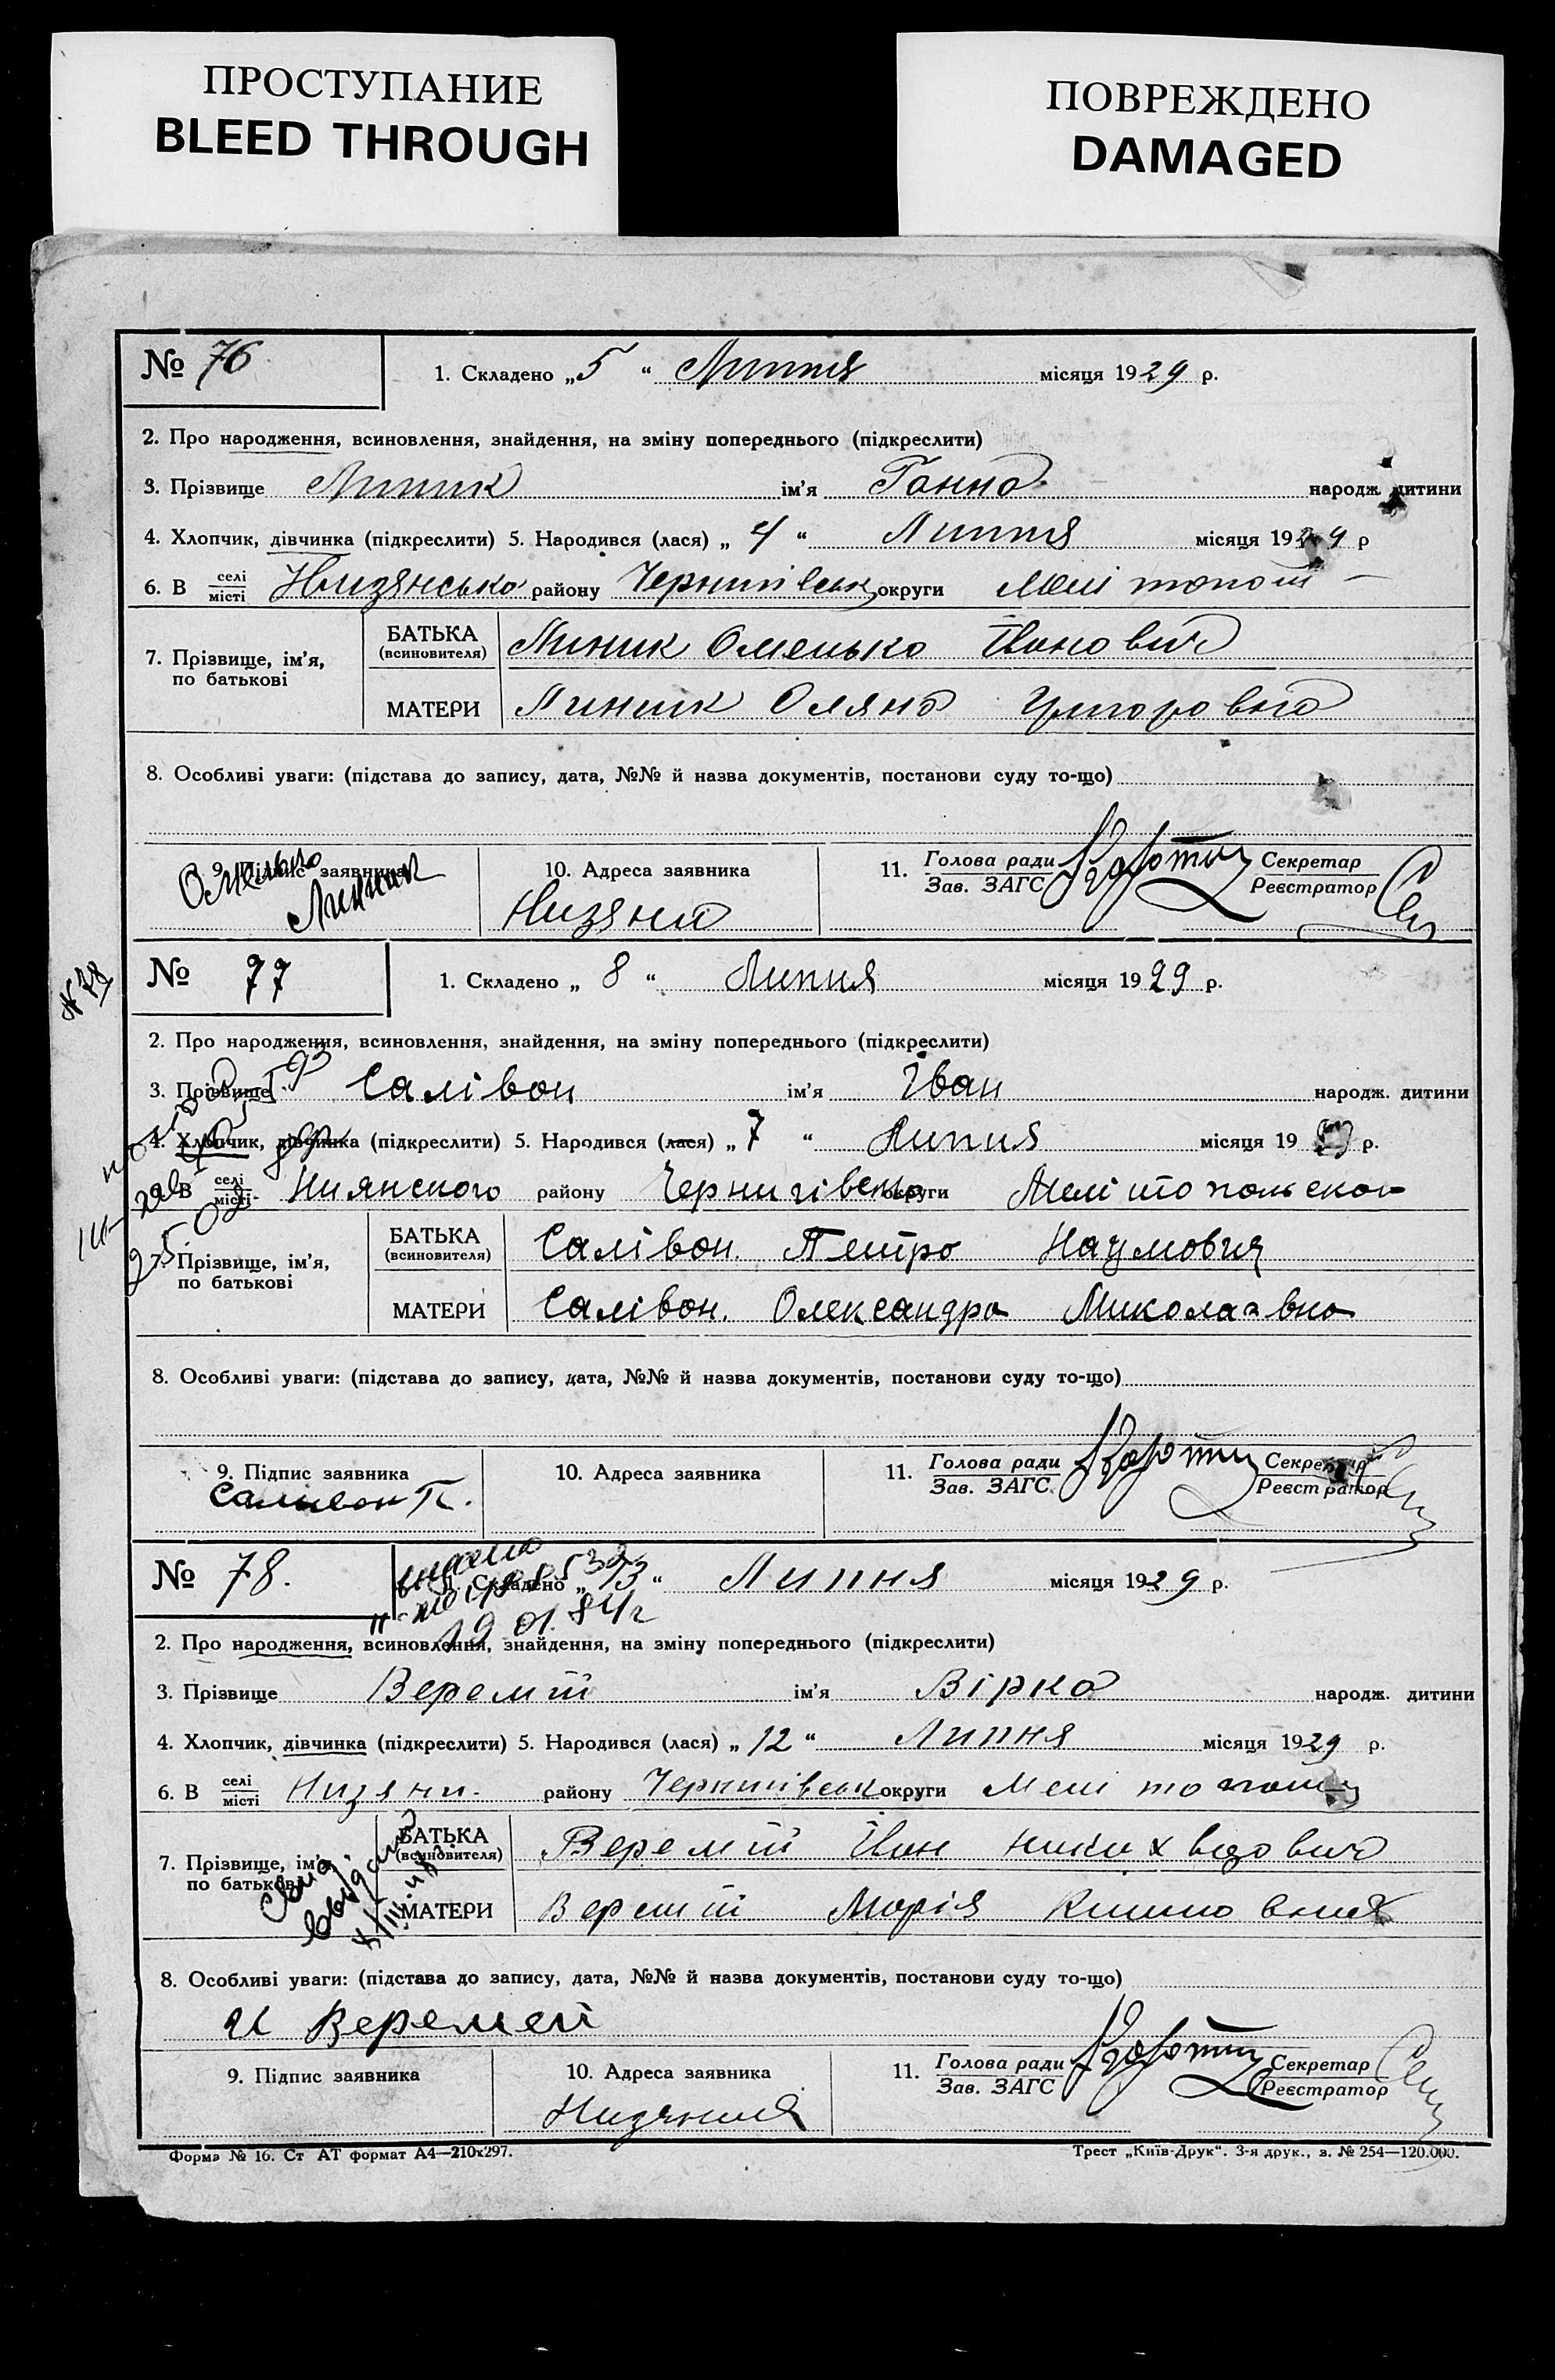 ПРОСТУПАНИЕ
BLEED THROUGH
ПОВРЕЖДЕНО
DAMAGED
№ 76
1. Складено „5“ Липня місяця 1929 р.
2. Про народження, всиновлення, знайдення, на зміну попереднього (підкреслити)
3. Прізвище Линник ім’я Ганна народж. дитини
4. Хлопчик, дівчинка (підкреслити) 5. Народився (лася) „4“ Липня місяця 1929 р
6. В селі/місті району Чернигівськ округи
7. Прізвище, ім’я, по батькові
БАТЬКА (всиновителя) Линик Омелько Іванович
МАТЕРИ Линник Оляна Григоровна
8. Особливі уваги: (підстава до запису, дата, №№ й назва документів, постанови суду то-що)
9. Підпис заявника Омелько Линник
10. Адреса заявника Низяни
11. Голова ради/Зав. ЗАГС Секретар/Реєстратор
№ 78
№ 77
1. Складено „8“ Липня місяця 1929 р.
2. Про народження, всиновлення, знайдення, на зміну попереднього (підкреслити)
3. Прізвище Салівон ім’я Іван народж. дитини
4. Хлопчик, дівчинка (підкреслити) 5. Народився (лася) „7“ Липня місяця 1929 р.
6. В селі/місті району округи
7. Прізвище, ім’я, по батькові
БАТЬКА (всиновителя) Салівон. Петро Наумович
МАТЕРИ Салівон. Олександра Миколаевна
8. Особливі уваги: (підстава до запису, дата, №№ й назва документів, постанови суду то-що)
9. Підпис заявника Саливон П.
10. Адреса заявника
11. Голова ради/Зав. ЗАГС Секретар/Реєстратор
№ 78.
1. Складено „13“ Липня місяця 1929 р.
2. Про народження, всиновлення, знайдення, на зміну попереднього (підкреслити)
3. Прізвище Веремій ім’я Вірка народж. дитини
4. Хлопчик, дівчинка (підкреслити) 5. Народився (лася) „12“ Липня місяця 1929 р.
6. В селі/місті Низяни. району Чернигівськ округи
7. Прізвище, ім’я, по батькові
БАТЬКА (всиновителя) Веремій Іван
МАТЕРИ Веремій Марія
8. Особливі уваги: (підстава до запису, дата, №№ й назва документів, постанови суду то-що)
И Веремей
9. Підпис заявника
10. Адреса заявника
11. Голова ради/Зав. ЗАГС Секретар/Реєстратор
Форма № 16. Ст АТ формат А4—210х297.
Трест „Київ-Друк“. 3-я друк., з. № 254—120.000.